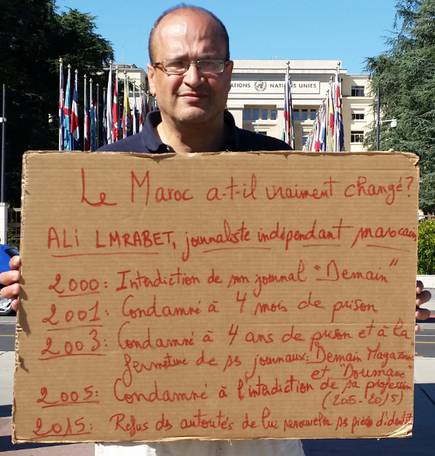 NATIONS UNIES
Le Maroc a-t-il vraiment changé?
ALI LMRABET, journaliste indépendant marocain
2000: Interdiction de mon journal "Demain"
2001: Condamné à 4 mois de prison
2003: Condamné à 4 ans de prison et à la
fermeture de ses journaux: "Demain Magazine
et "Doumane"
2005: Condamné à l'interdiction de sa profession
(2005-2015)
2015: Refus des autorités de lui renouveler ses pièces d'identité